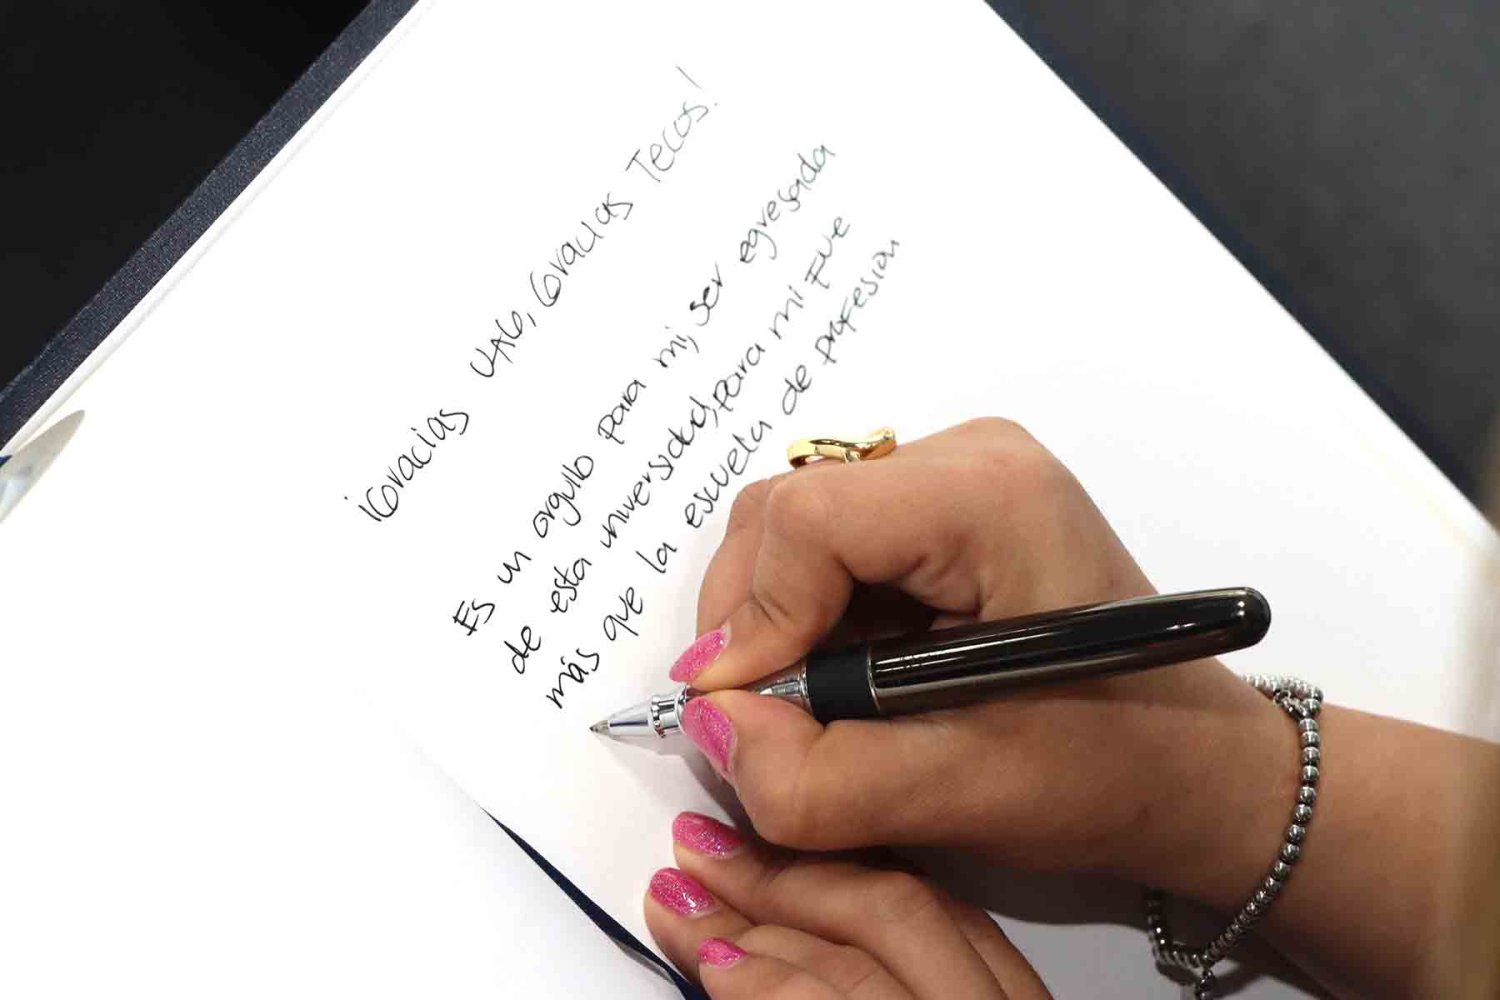 ¡Gracias UAG, Gracias Tecos!
Es un orgullo para mi, ser egresada
de esta universidad, para mi fue
más que la escuela de profesión